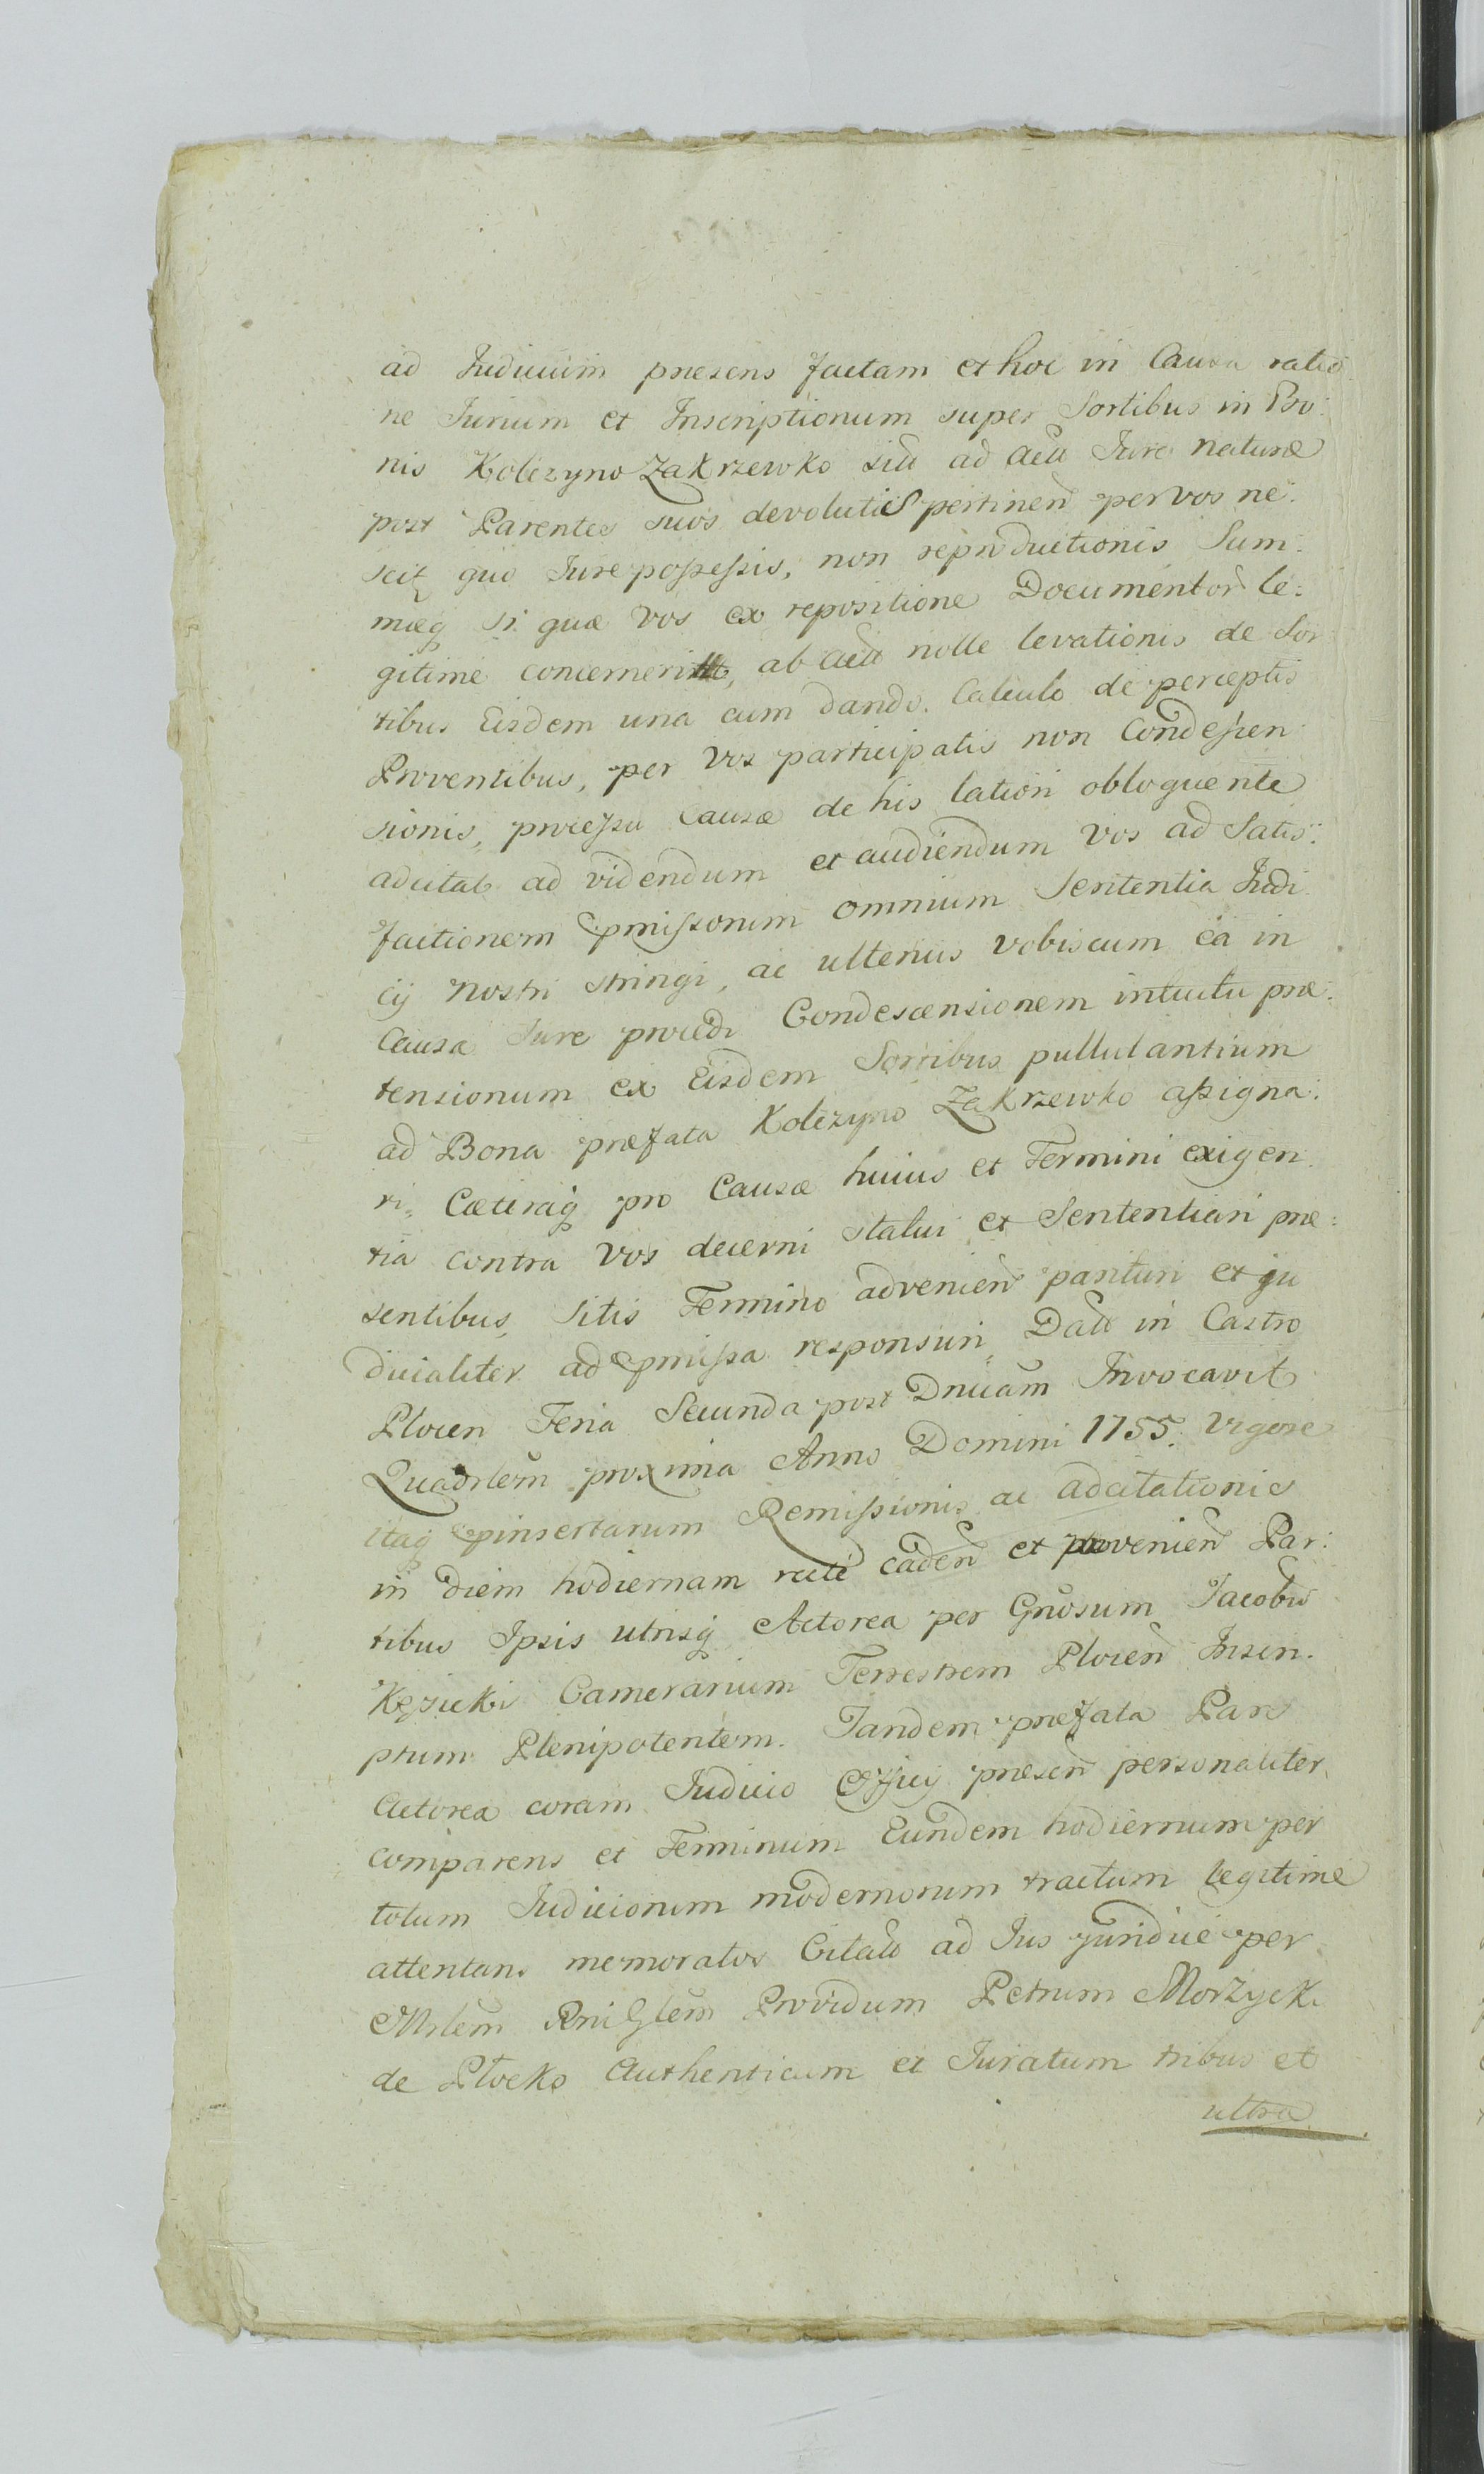 ad Judicium præsens factam et hoc in Causa ratio
ne Jurium et Inscriptionum super Sortibus in Bo:
nis Kolczyno Zakrzewko sitt ad Actt Jure naturæ
post Parentes suos devolutis pertinen per vos ne:
scitz quo Jure possessis, non reproductionis Sum:
mæq si quæ vos ex repositione Documentor le:
gitime concernerint, ab Actt nolle levationis de Sor
tibus Eisdem una cum dando Calculo de perceptis
Proventibus, per Vos participatis non Condescen
sionis, processu Causæ de his latiori obloquente
adcitat ad videndum et audiendum vos ad Satis:
factionem pmissorum omnium Sententia Judi
cij Nostri stringi, ac ulterius vobiscum eâ in
Causa Jure procedi Condescensionem intuitu præ:
tensionum ex Eisdem Sortibus pullulantium
ad Bona præfata Kolczyno Zakrzewko assigna:
ri, Cæteraq pro Causæ huius et Termini exigen
tia contra Vos decerni statui et Sententiari præ:
sentibus, Sitis Termino advenien parituri et ju
dicialiter ad pmissa responsuri, Datt in Castro
Plocen Feria Secunda post Dnicam Invocavit
Quadrlem proxima Anno Domini 1755. Vigore
itaq pinsertarum Remissionis ac adcitationis
in diem hodiernam recte caden et provenien Par:
tibus Ipsis utrisq Actorea per Gnosum Jacobu
Kęsicki Camerarium Terrestrem Plocen Inscri.
ptum Plenipotentem. Tandem præfata Pars
Actorea coram Judicio Officij præsen personaliter
comparens et Terminum Eundem hodiernum per
totum Judiciorum modernorum tractum legitime
attentans memoratos Citatt ad Jus juridice per
Mrlem Providum Petrum Morżycki
de Płocko Authenticum et Juratum tribus et
ultra